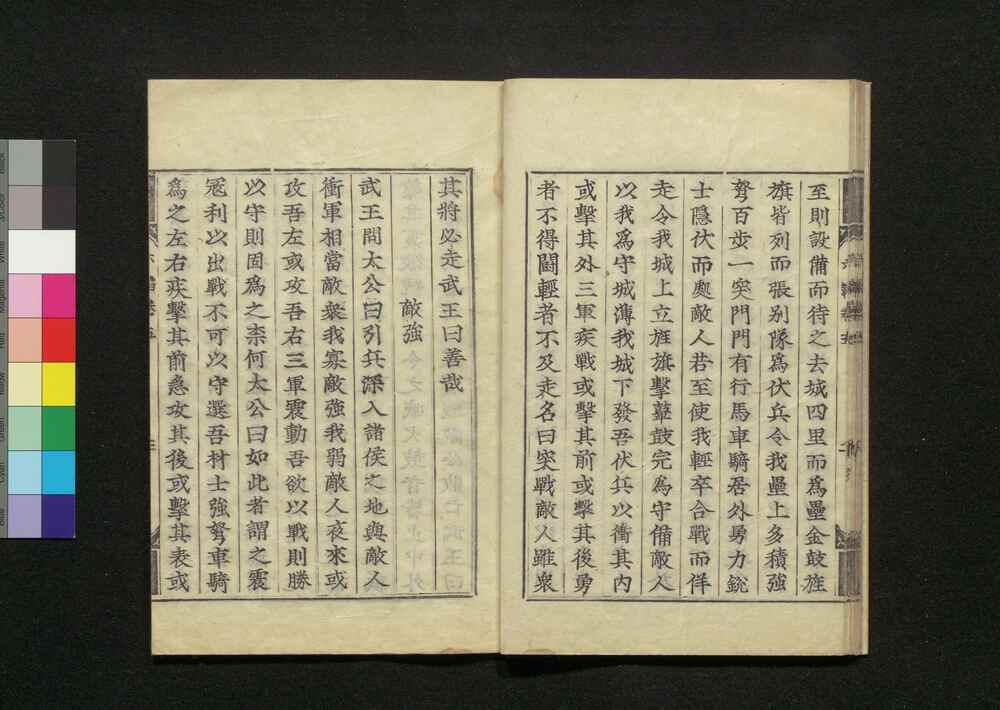 至則設備而待之去城四里而爲壘金鼓旌
旗皆列而張别隊爲伏兵令我壘上多積強
弩百步一突門門有行馬車騎居外勇力銳
士隱伏而處敵人若至使我輕卒合戰而佯
走令我城上立旌旗擊鼙鼓完爲守備敵人
以我爲守城薄我城下發吾伏兵以衝其內
或擊其外三軍疾戰或擊其前或擊其後勇
者不得鬭輕者不及走名曰突戰敵人雖衆
其將必走武王曰善哉
敵強
武王問太公曰引兵深入諸侯之地與敵人
衝軍相當敵衆我寡敵強我弱敵人夜來或
攻吾左或攻吾右三軍震動吾欲以戰則勝
以守則固爲之柰何太公曰如此者謂之震
冦利以出戰不可以守選吾材士強弩車騎
爲之左右疾擊其前急攻其後或擊其表或